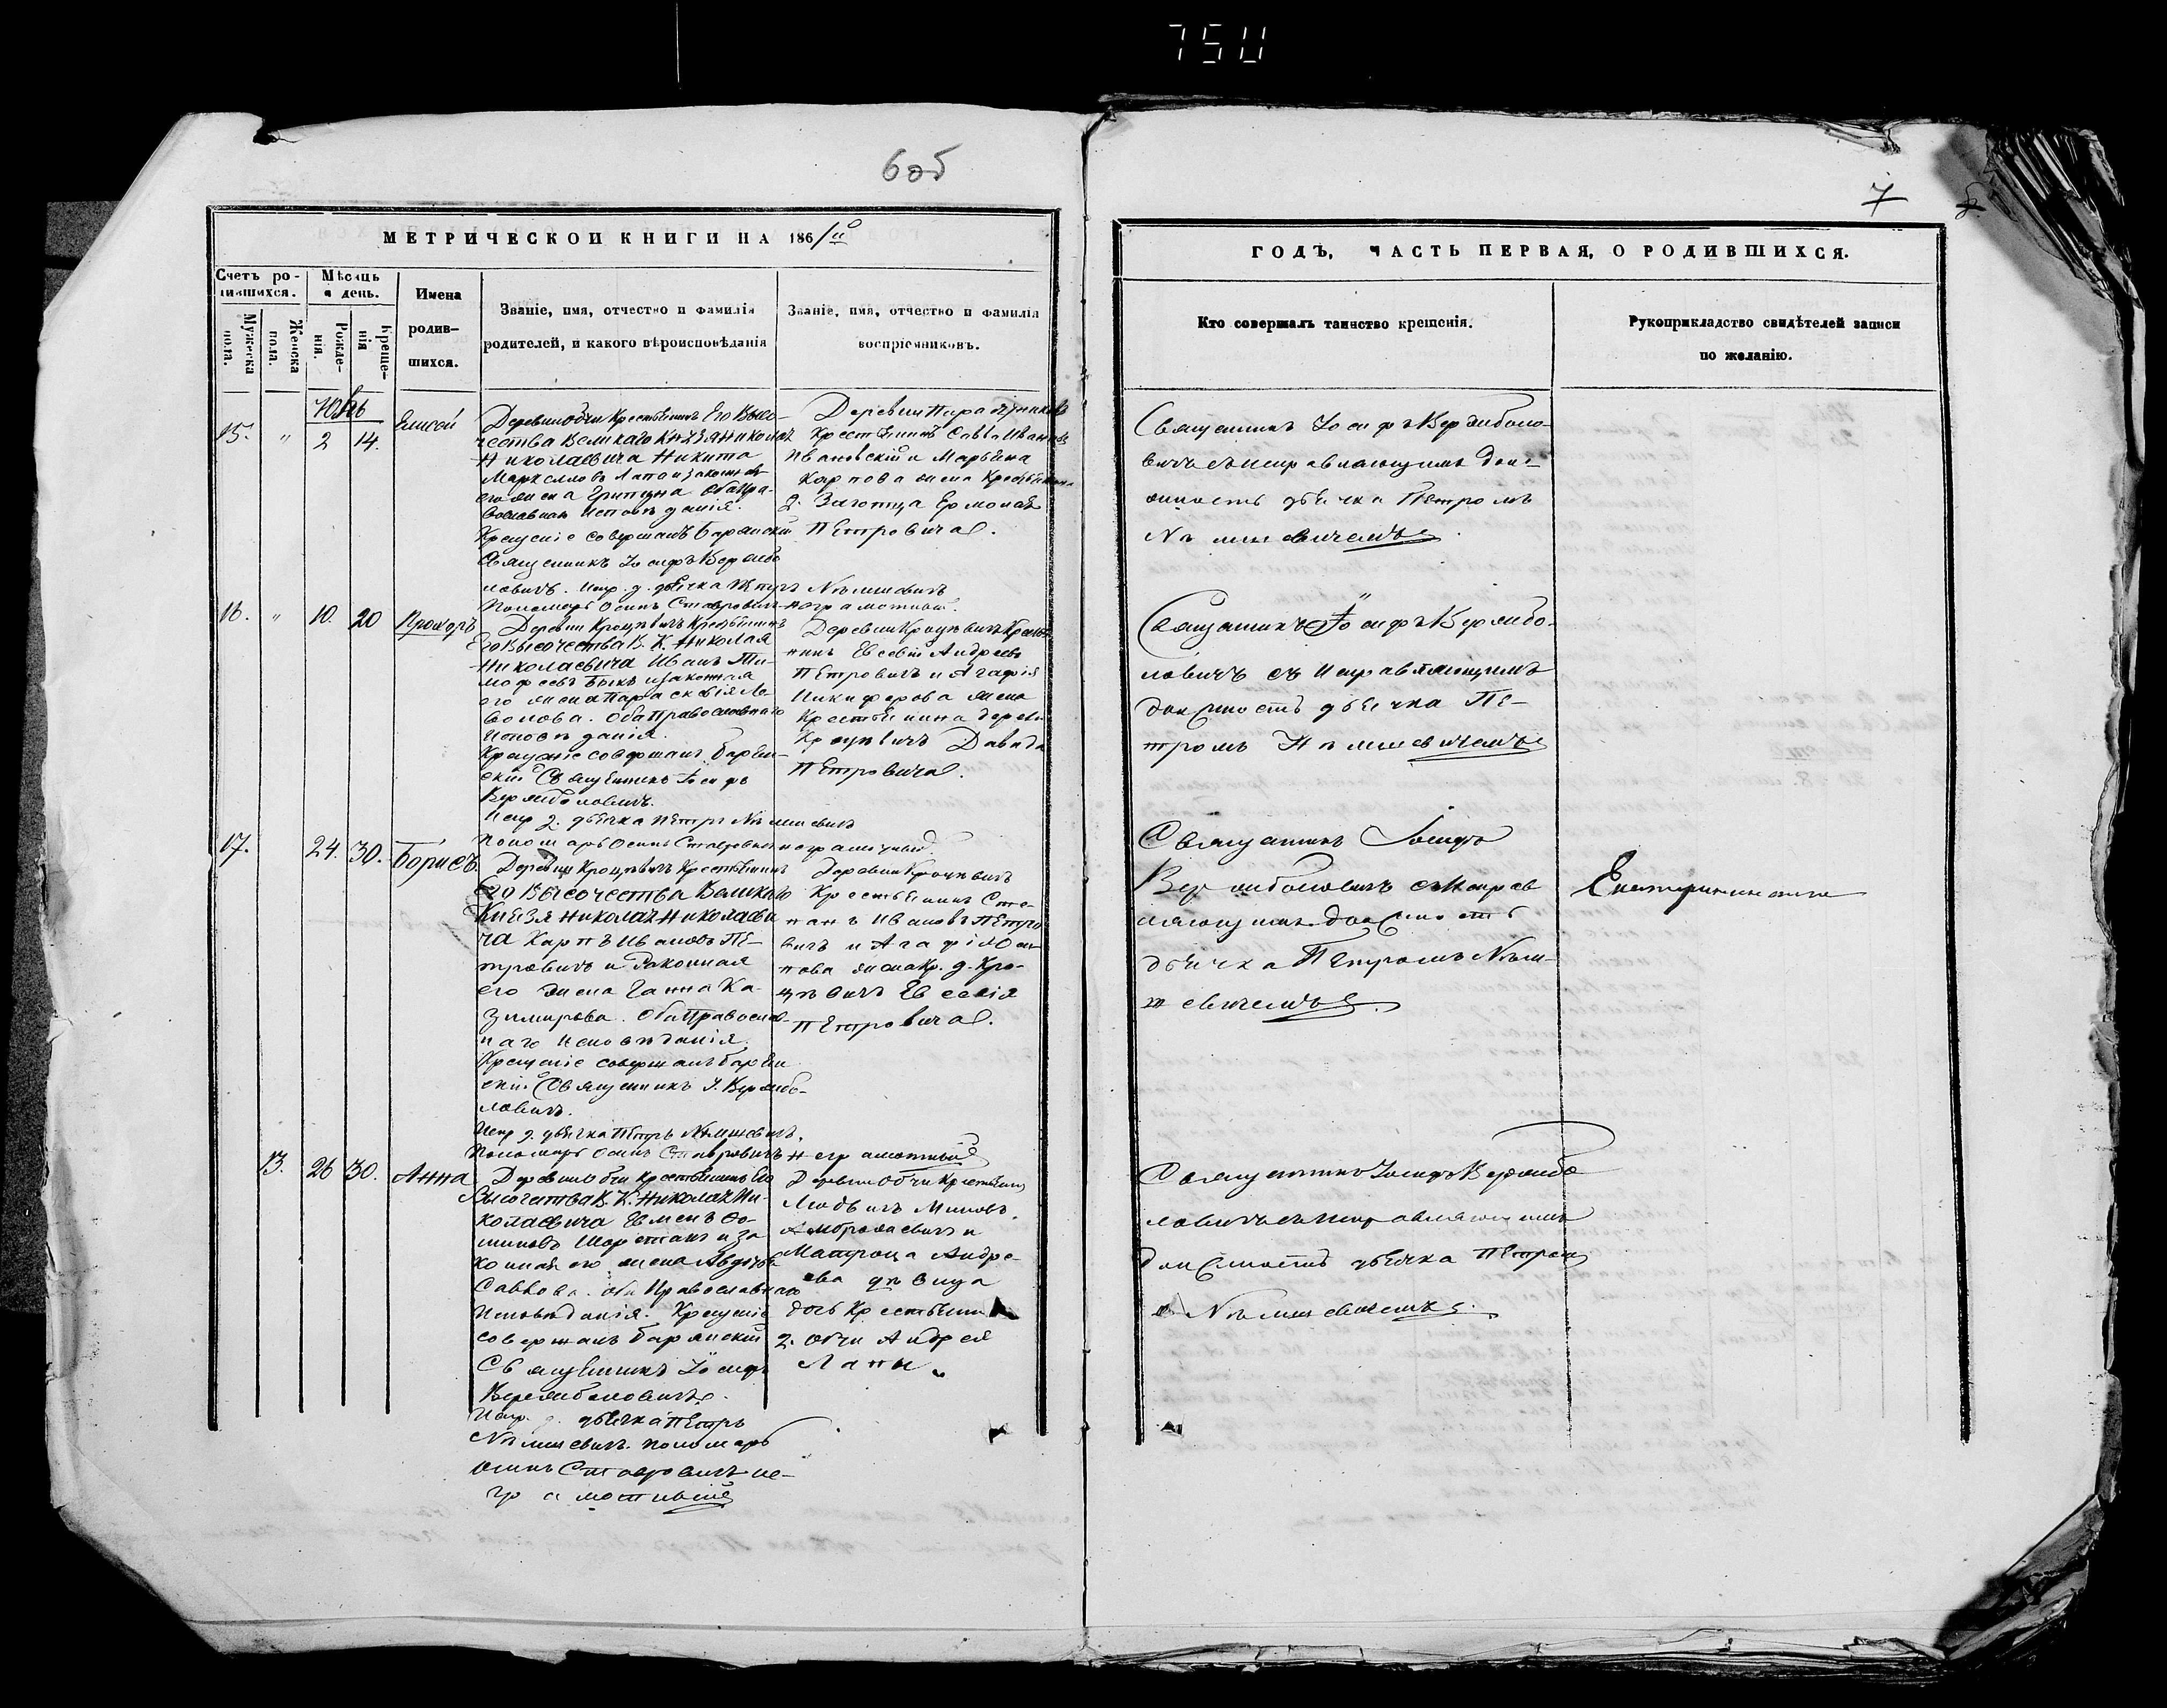 75U
6об
7
МЕТРИЧЕСКОИ КНИГИ НА 1861го
Счетъ ро-
дившихся.
Мѣсяць
и день.
Мужеска
пола.
Женска
пола.
Рожде-
нія.
Креще-
нія
Имена
родив-
шихся.
Званіе, имя, отчество и фамилія
родителей, и какого вѣроисповѣданія
Званіе, имя, отчество и фамилія
воспріемниковъ.
Юнь
15. " 2 14. Елисей
Деревни Обчи Крестьянинъ Его Высо-
чества Великаго Князя Николая
Николаевича Никита
Маркеловъ Лапо и законная
его жена Ерипина оба пра-
вославнаго исповѣданія.
Крещеніе совершалъ
Священникъ Іосифъ Вержбо
ловичъ. Испр. д. дьячка Петръ
Пономарь Осипъ Ставровичъ неграмотный.
Деревни
Крестьянинъ Савва Ивановъ
Ивановскій и Марьяна
Карпова жена Крестьянина
Ермолая
Петровича.
16. " 10. 20 Прохоръ
Деревни Кроцѣвичъ Крестьянинъ
Его Высочества В. К. Николая
Николаевича Иванъ Ти-
мофеевъ Быкъ и законная
его жена Параскевія Ле
вонова. Оба Православнаго
Исповѣданія.
Крещеніе совершалъ
скій Священникъ Іосифъ
Вержболовичъ.
Испр д. дьячка Петръ
Пономарь Осипъ Ставровичъ неграмотный.
Деревни Кроцѣвичъ Крестья
нинъ Евсевій Андреевъ
Петровичъ и Агафія
Никифорова жена
Крестьянина деревни
Кроцѣвичъ Давида
Петровича.
17. 24. 30. Борисъ
Деревни Кроцѣвичъ Крестьянинъ
Его Высочества Великаго
Князя Николая Николаеви
ча Карпъ Ивановъ Пе-
тровичъ и Законная
его жена Ганна Ка-
зимирова. Оба Православ-
наго исповѣданія.
Крещеніе совершалъ
скій Священникъ І. Вержбо-
ловичъ.
Испр д. дьячка Петръ
Пономарь Осипъ Ставровичъ неграмотный
Деревни Кроцѣвичъ
Крестьянинъ Сте-
панъ Ивановъ Петро
вичъ и Агафія Оси
пова жена Кр. д. Кро-
цѣвичъ Евсевія
Петровича.
13. 26 30. Анна
Деревни Обчи Крестьянинъ Его
Высочества В. К. Николая Ни-
колаевича Евменъ Фо-
миновъ и за
конная его жена Авдотья
Савкова. оба Православнаго
Исповѣданія. Крещеніе
совершалъ
Священникъ Іосифъ
Вержболовичъ.
Испр. д. дьячка Петръ
Пономарь
Осипъ Ставровичъ не-
грамотный
Деревни Обчи Крестьянинъ
Людвигъ Миновъ
Амброжевичъ и
Матрона Андре-
ева дѣвица
дочь Крестьянина
д. Обчи Андрея
Лапы.
ГОДЪ, ЧАСТЬ ПЕРВАЯ, О РОДИВШИХСЯ.
Кто совершалъ таинство крещенія.
Рукоприкладство свидѣтелей записи
по желанію.
Священникъ Іосифъ Вержболо-
вичъ съ исправляющимъ дол-
жность дьячка Петромъ
Священникъ Іосифъ Вержбо-
ловичъ съ исправляющимъ
должность дьячка Пе-
тромъ
Священникъ Іосифъ
Вержболовичъ съ исправ
ляющимъ должность
дьячка Петромъ
Священникъ Іосифъ Вержбо
ловичъ съ исправляющимъ
должность дьячка Петром